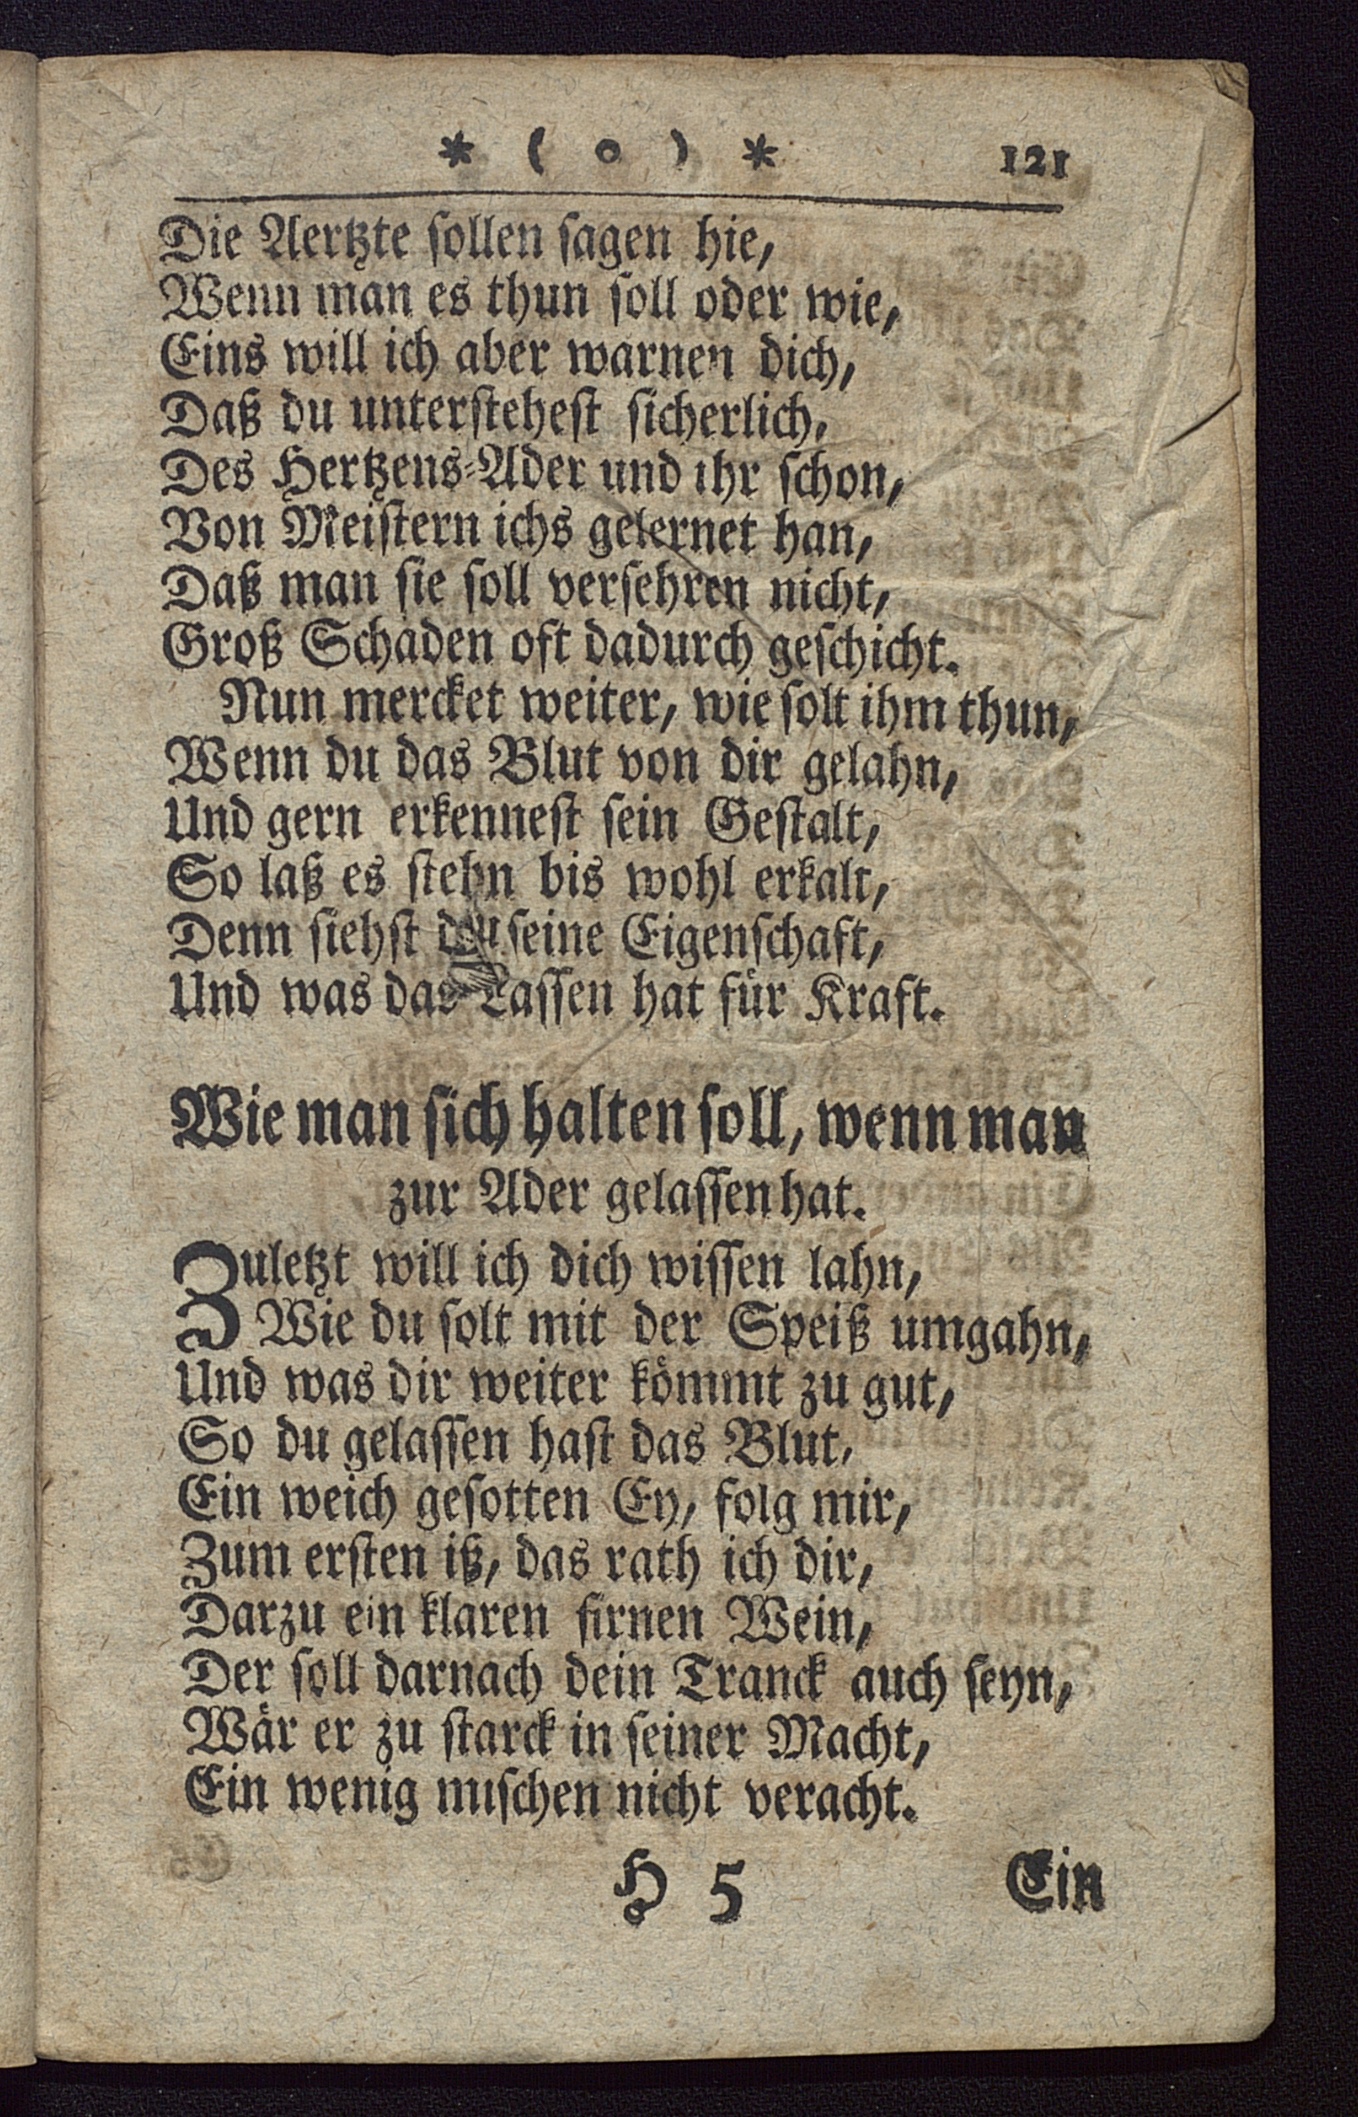 * ( o ) * 121
Die Aertzte sollen sagen hie,
Wenn man es thun soll oder wie,
Eins will ich aber warnen dich,
Daß du unterstehest sicherlich,
Des Hertzens-Ader und ihr schon,
Von Meistern ichs gelernet han,
Daß man sie soll versehren nicht,
Groß Schaden oft dadurch geschicht.
Nun mercket weiter, wie solt ihm thun,
Wenn du das Blut von dir gelahn,
Und gern erkennest sein Gestalt,
So laß es stehn bis wohl erkalt,
Denn siehst du seine Eigenschaft,
Und was das Lassen hat für Kraft.
Wie man sich halten soll, wenn man
zur Ader gelassen hat.
Zuletzt will ich dich wissen lahn,
Wie du solt mit der Speiß umgahn,
Und was dir weiter kömmt zu gut,
So du gelassen hast das Blut,
Ein weich gesotten Ey, folg mir,
Zum ersten iß, das rath ich dir,
Darzu ein klaren firnen Wein,
Der soll darnach dein Tranck auch seyn,
Wär er zu starck in seiner Macht,
Ein wenig mischen nicht veracht.
H 5 Ein